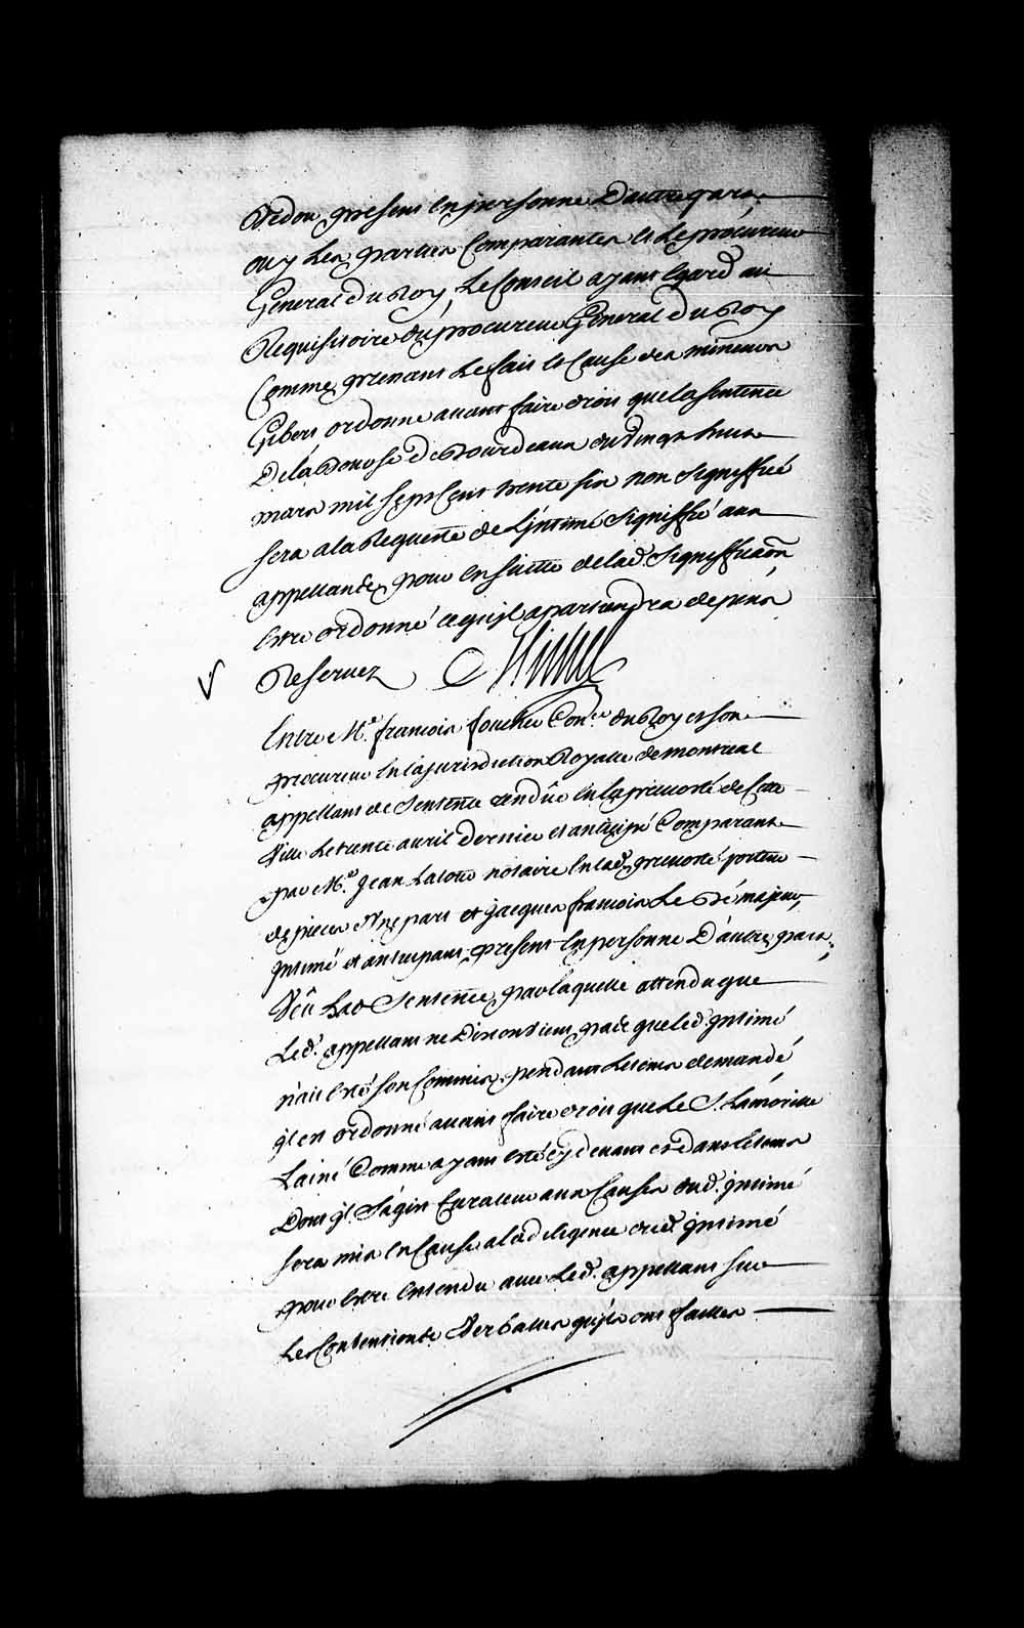 dedou present en personne Dautre part
ouy Les parties Comparantes et Le procureur
General du Roy, Le Conseil ayant Egard au
Requisitoire du procureur General du Roy
Comme prenant Le fait et Cause des mineurs
Gibert ordonne avant faire droit que la sentence
De la Bourse de Bourdeaux du vingt huit
mars mil sept Cent trente six non signiffié
sera a la Requeste de L'jntimé signiffié aux
appellants, pour ensuitte de lad. signifficaōn
estre ordonné ce qu'jl apartiendra depens
Reservez
Entre Me. francois foucher Coner. du Roy et son
procureur en la jurisdiction Royalle de montreal
appellant de Sentence rendüe en la prevosté de Cette
Ville Le trente avril Dernier et anticipé Comparant
par Me. Jean Latour notaire en lad. prevosté porteur
de pieces d'une part et jacques francois Le Bé majeur
jntimé et anticipant, present en personne D'autre part,
Veû Lad. Sentence, par laquelle attendu que
Led. appellant ne Disconvient pas que led. jntimé
n'ait esté son Commis, pendant Le tems demandé
jl est ordonné avant faire droit que Le S. Lamorille
Lainé Comme ayant esté cy devant et dans le tems
Dont jl s'agit Curateur aux Causes dud. jntimé
sera mis en Cause a la diligence dud. jntimé
pour estre entendu avec Led. appellant sur
Les Conventions Verballes qu'jls ont faittes